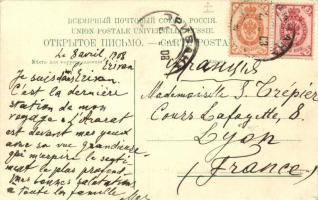 ВСЕМІРНЫЙ ПОЧТОВЫЙ СОЮЗЪ. РОССІЯ.
UNION POSTALE UNIVERSELLE. RUSSIE.
ОТКРЫТОЕ ПИСЬМО. — CARTE POSTALE
Le 8 avril 1908
Erivan
Je suis à Erivan.
C'est la dernière
station de mon
voyage. L'Ararat
est devant mes yeux
avec sa vue grandiose
qui m'inspire le senti-
ment le plus profond.
Mes bonnes salutations
à toute la famille
Франція
Mademoiselle J. Trépier
Cours Lafayette, 8
Lyon
(France)